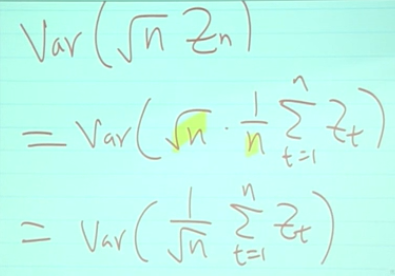 Var(√n Zn)
= Var(√n · 1/n Σ_{t=1}^{n} Zt)
= Var(1/√n Σ_{t=1}^{n} Zt)